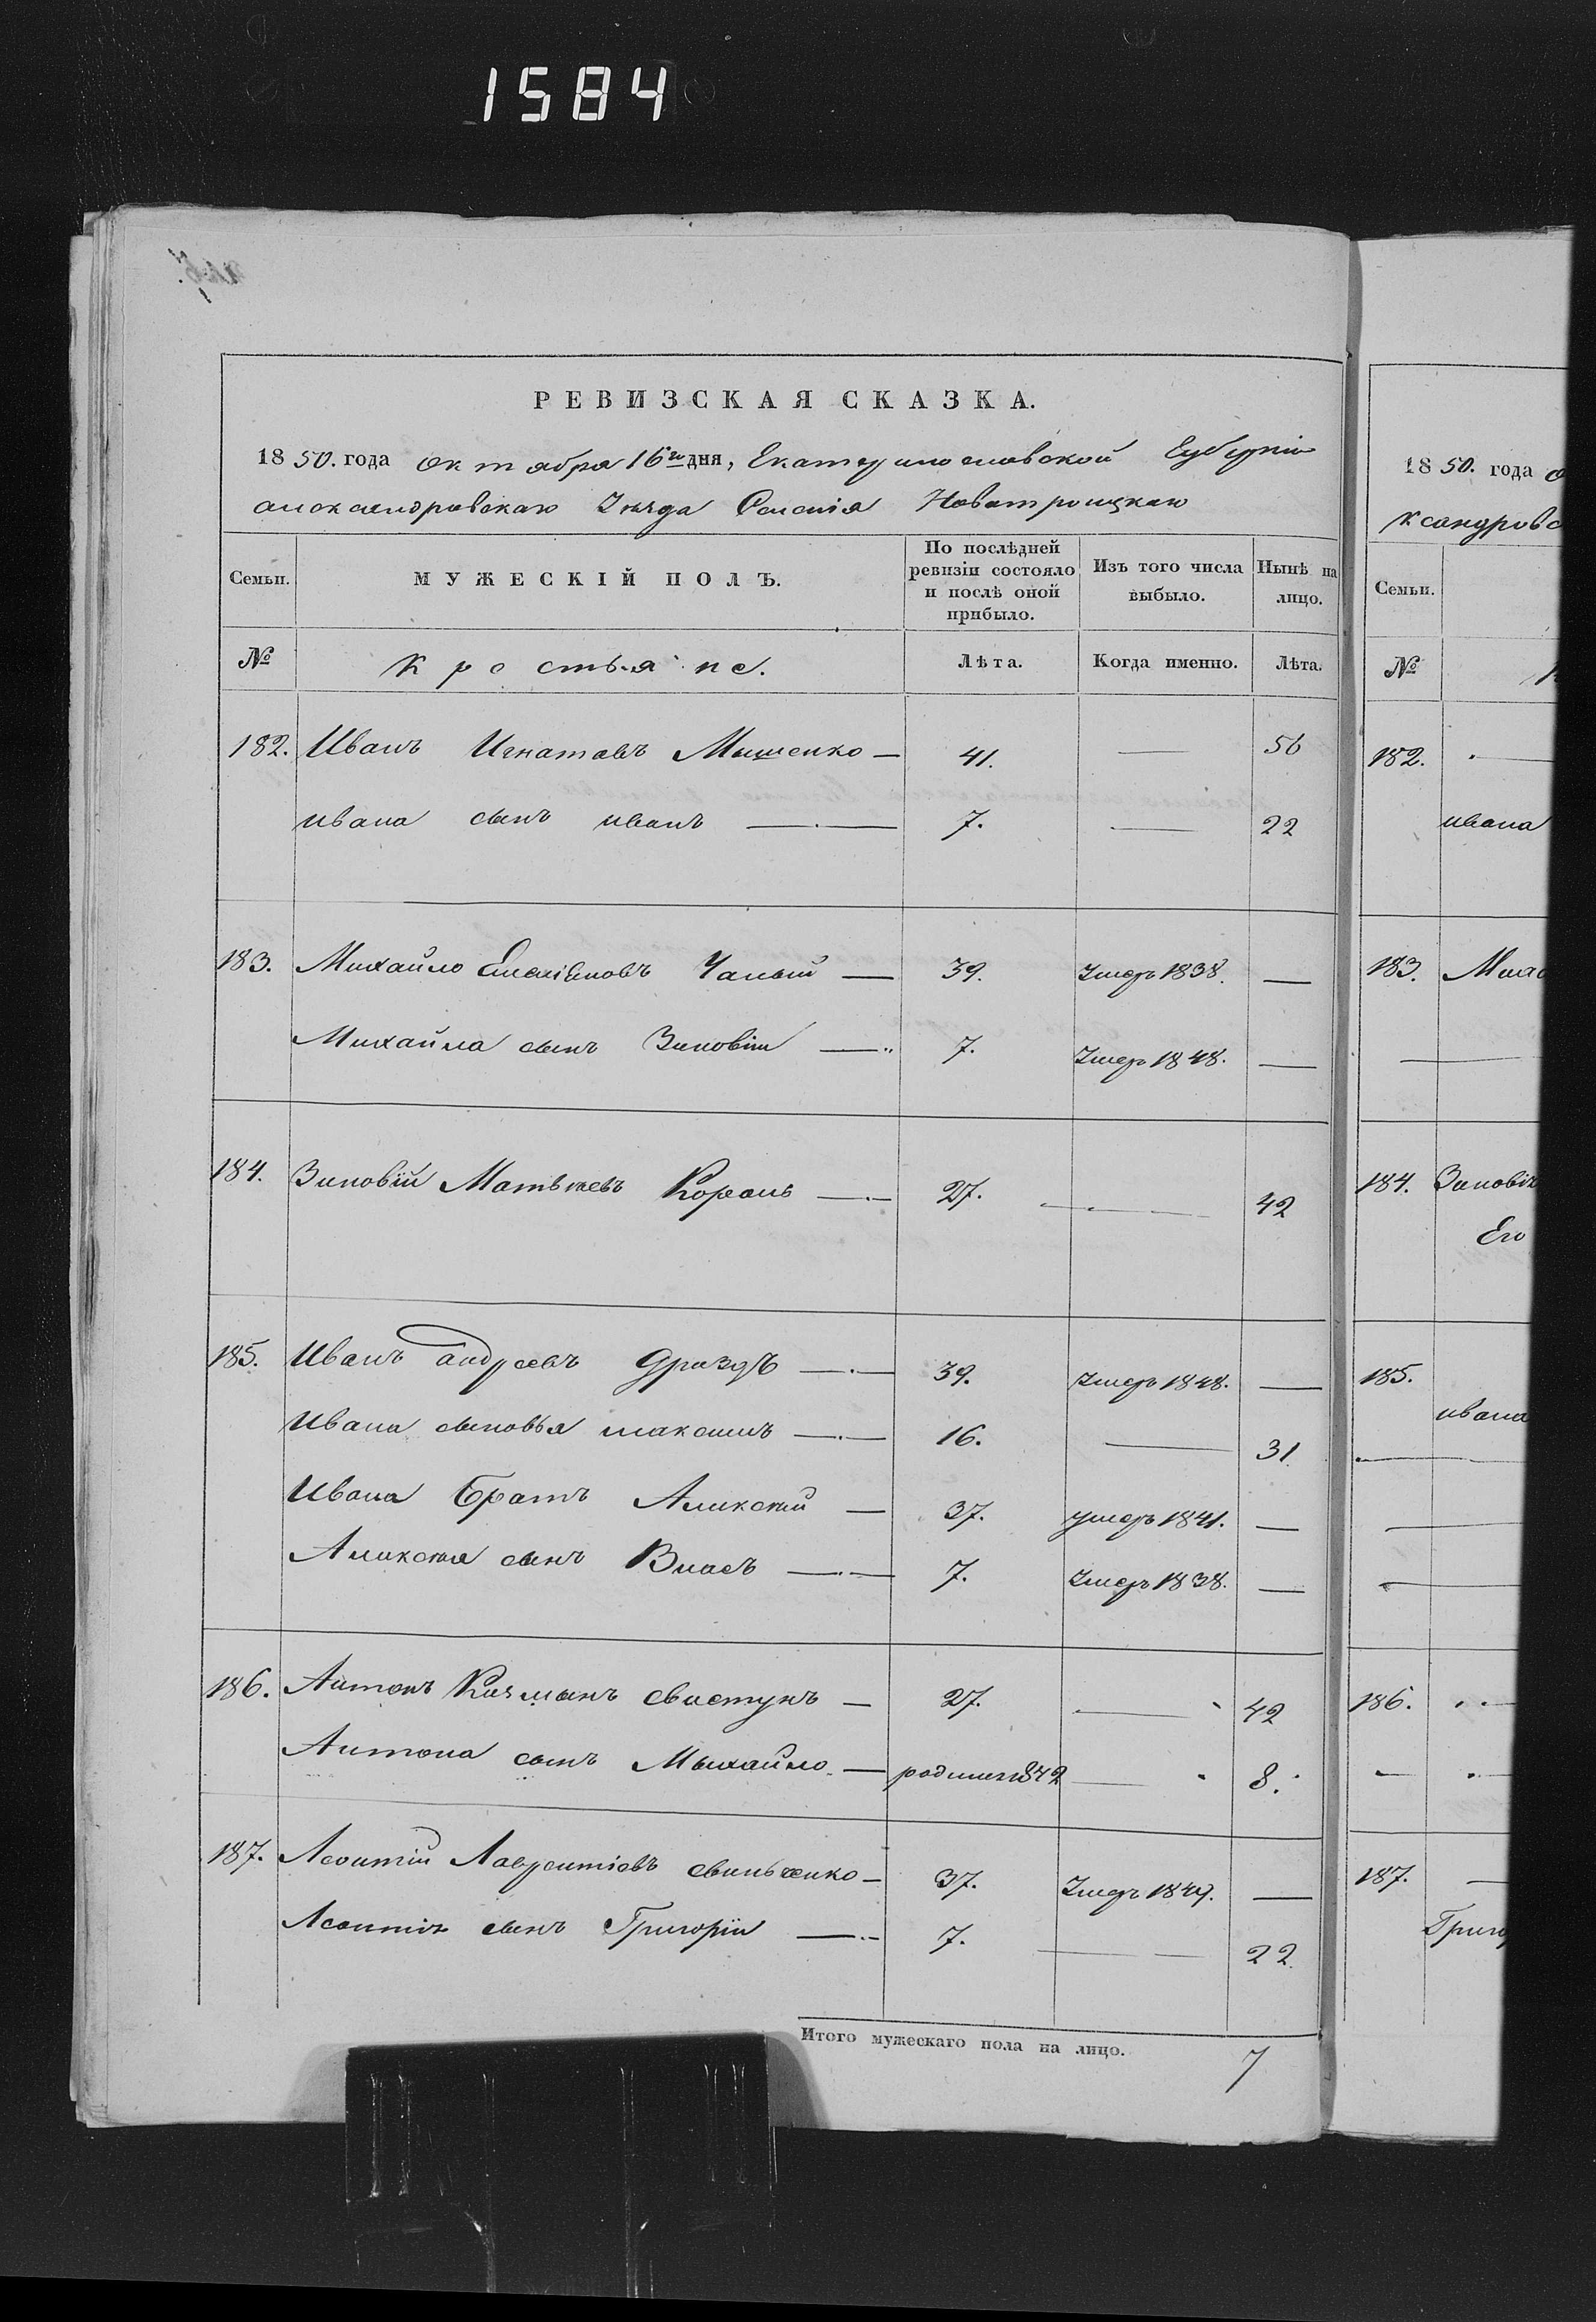 1584
РЕВИЗСКАЯ СКАЗКА.
1850. года октября 16го дня, Екатеринославской Губерніи
александровскаго Уезда Селенія Новатроицкаго
Семьи. МУЖЕСКІЙ ПОЛЪ. По послѣдней ревизіи состояло и послѣ оной прибыло. Изъ того числа выбыло. Нынѣ на лицо.
№ Крестьяне. Лѣта. Когда именно. Лѣта.
182. Иванъ Игнатовъ Мишенко — 41. — 56
ивана сынъ иванъ — 7. — 22
183. Михайло Чалый — 39. Умеръ 1838. —
Михайла сынъ Зиновіи — 7. Умеръ 1848. —
184. Зиновій Матвѣевъ Корань — 27. — 42
185. Иванъ андреевъ Дроздъ — 39. Умеръ 1848. —
Ивана сыновья максимъ — 16. — 31
Ивана Братъ Аликсѣй — 37. умеръ 1841. —
Аликсѣя сынъ Власъ — 7. Умеръ 1838. —
186. Антонъ свистунъ — 27. — 42
Антона сынъ Мыхайло — родился 1842 — 8.
187. Леонтій Лаврентіевъ свинченко — 37. Умеръ 1849. —
Леонтія сынъ Григорій — 7. — 22
Итого мужескаго пола на лицо. 7
1850. года о
ксандровс
Семьи.
№
182. —
ивана
183. Миха
—
184. Зиновія
Его
185.
ивана
—
—
—
186. —
—
187. —
Григ